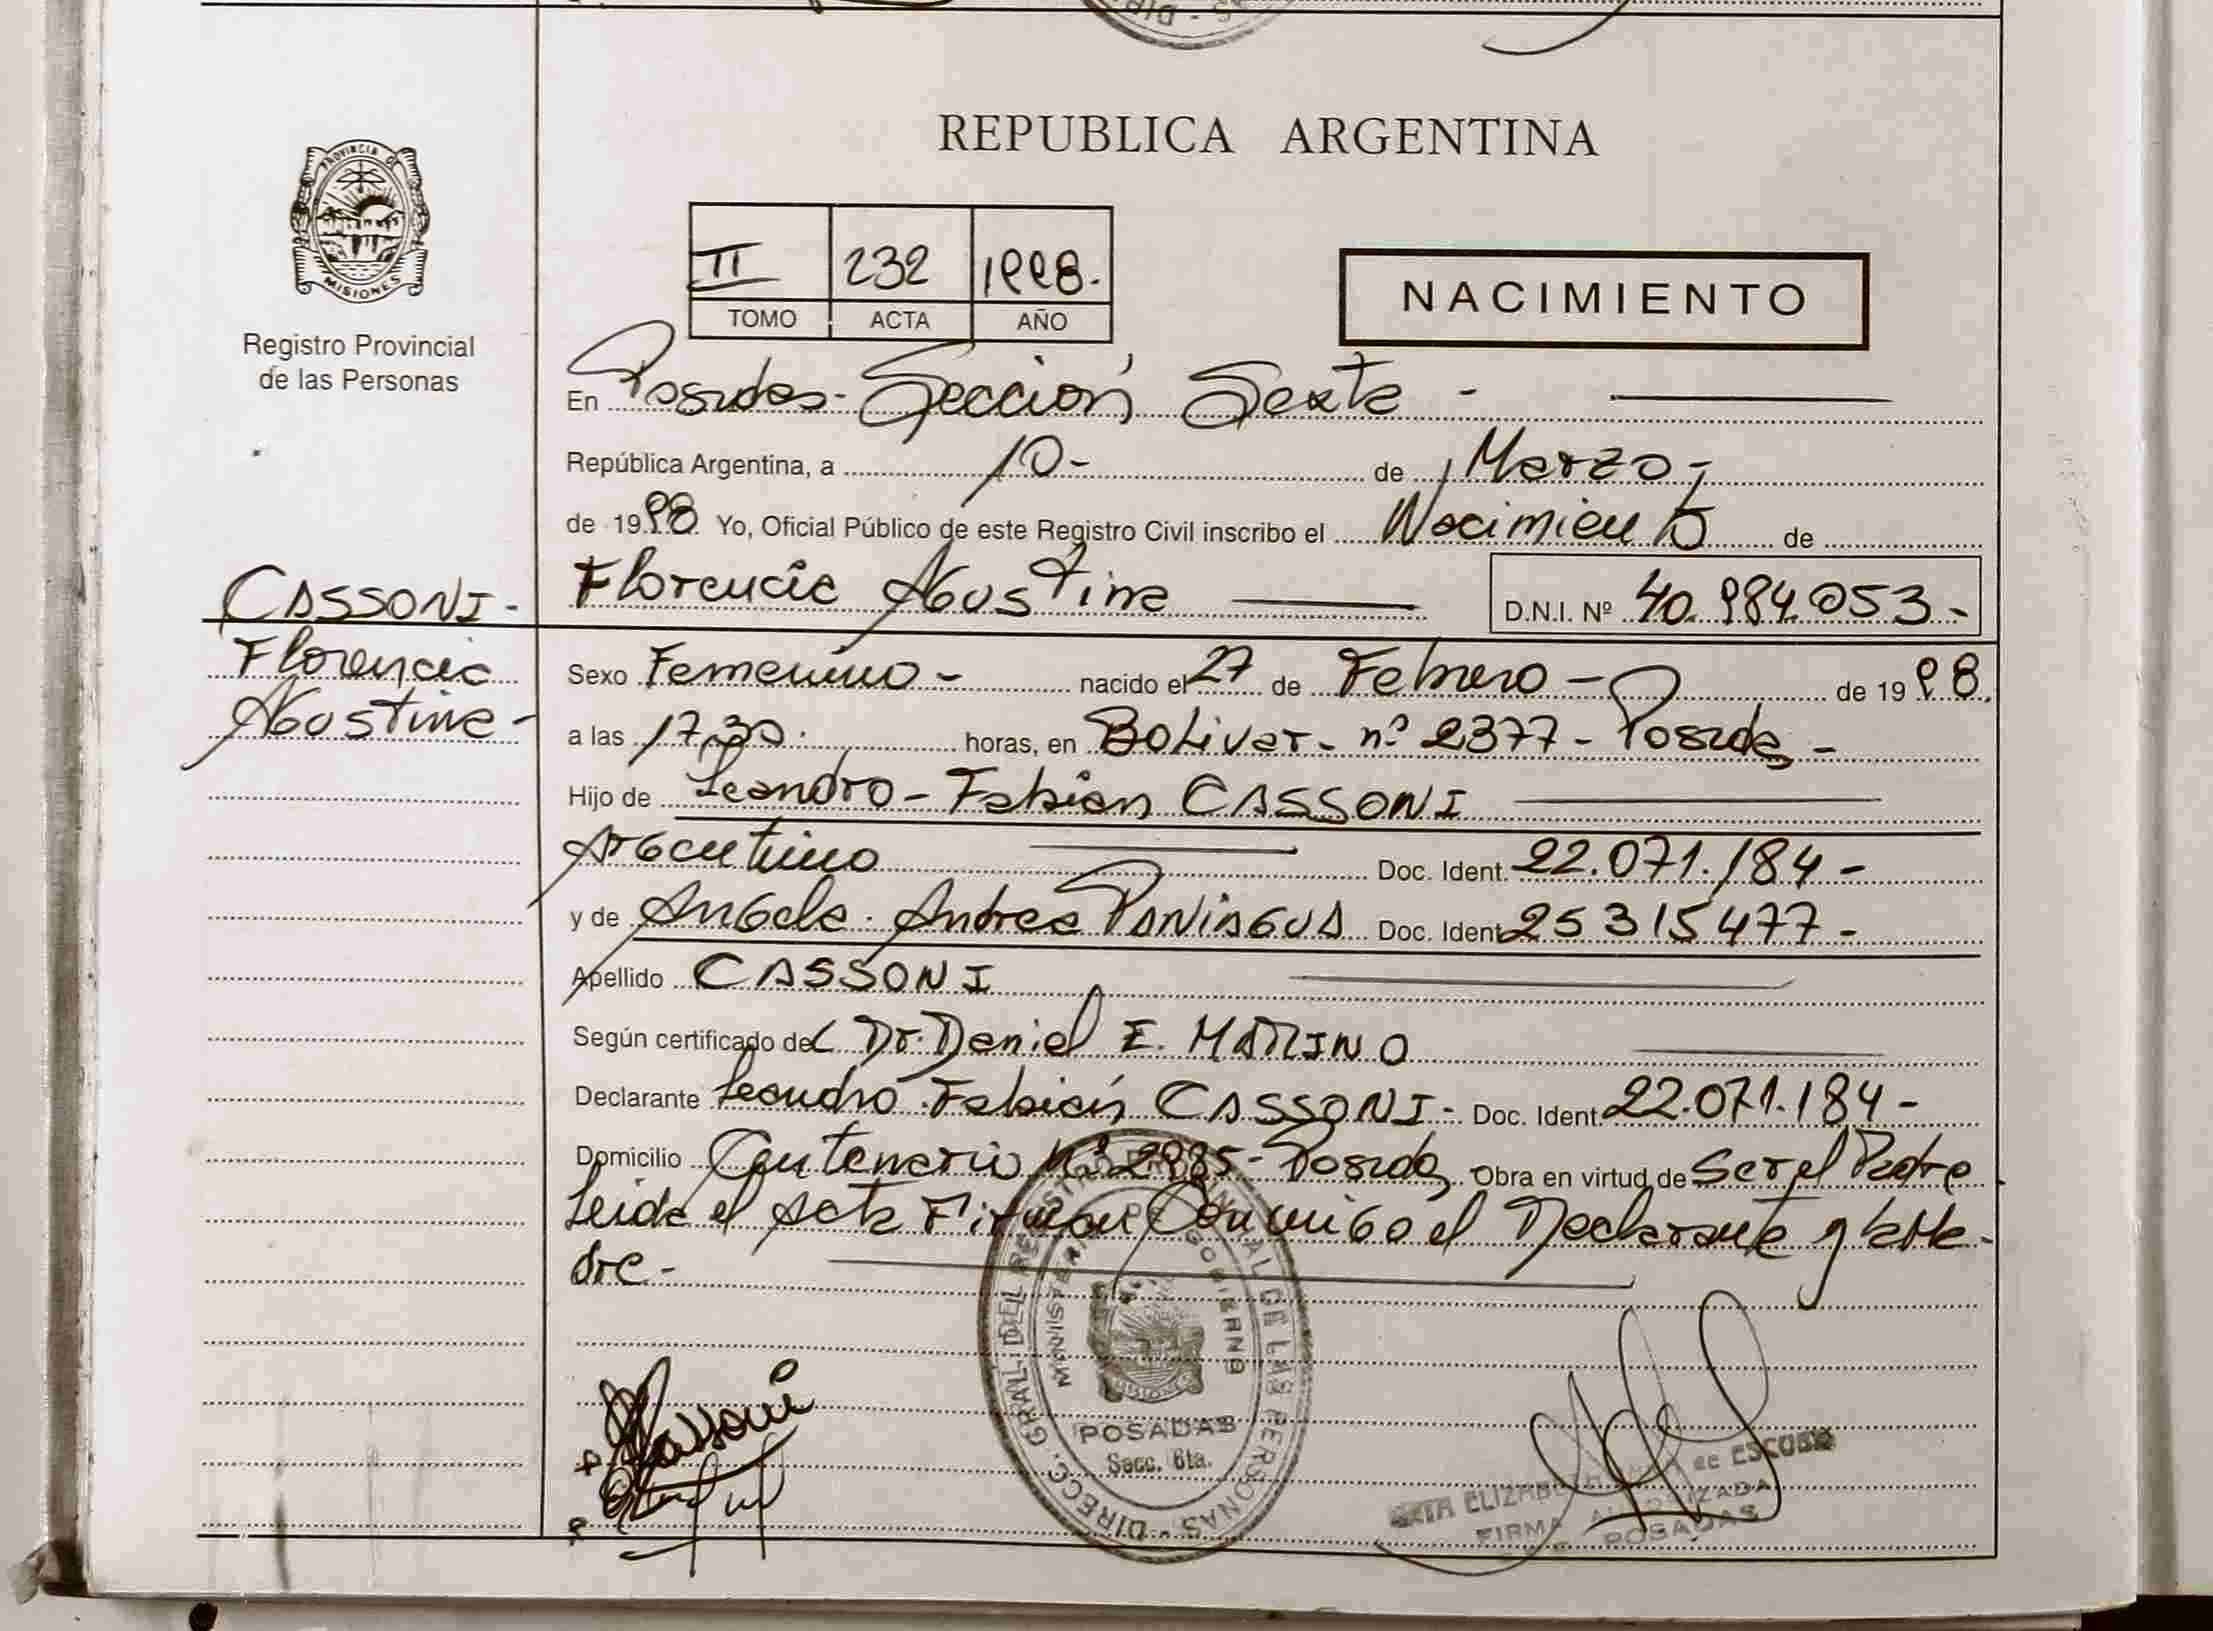 REPUBLICA ARGENTINA
PROVINCIA DE
MISIONES
Registro Provincial
de las Personas
II 232 1998.-
TOMO ACTA AÑO
NACIMIENTO
En Posadas - Sección Sexta -
República Argentina, a 10- de Marzo -
de 1998 Yo, Oficial Público de este Registro Civil inscribo el Nacimiento de
CASSONI -
Florencia Agustina D.N.I. Nº 40.984.053.-
Florencia
Agustina -
Sexo Femenino - nacido el 27 de Febrero - de 19 98.
a las 17,30. horas, en Bolivar - nº 2377 - Posadas -
Hijo de Leandro - Fabian CASSONI
Argentino Doc. Ident. 22.071.184 -
y de Angela Andrea PANIAGUA Doc. Ident 25315477 -
Apellido CASSONI
Según certificado del Dr. Daniel E. MARINO
Declarante Leandro Fabián CASSONI - Doc. Ident. 22.071.184 -
Domicilio Centenario Nº 2985 - Posadas Obra en virtud de Ser el Padre
Leida el Acta Firman Conmigo el Declarante y la Ma-
dre -
DIRECC. GRAL. DEL REGISTRO PROVINCIAL DE LAS PERSONAS
MINISTERIO DE GOBIERNO
MISIONES
POSADAS
Secc. 6ta.
Cassoni
ELIZABETH de ESCOBAR
FIRMA AUTORIZADA
POSADAS